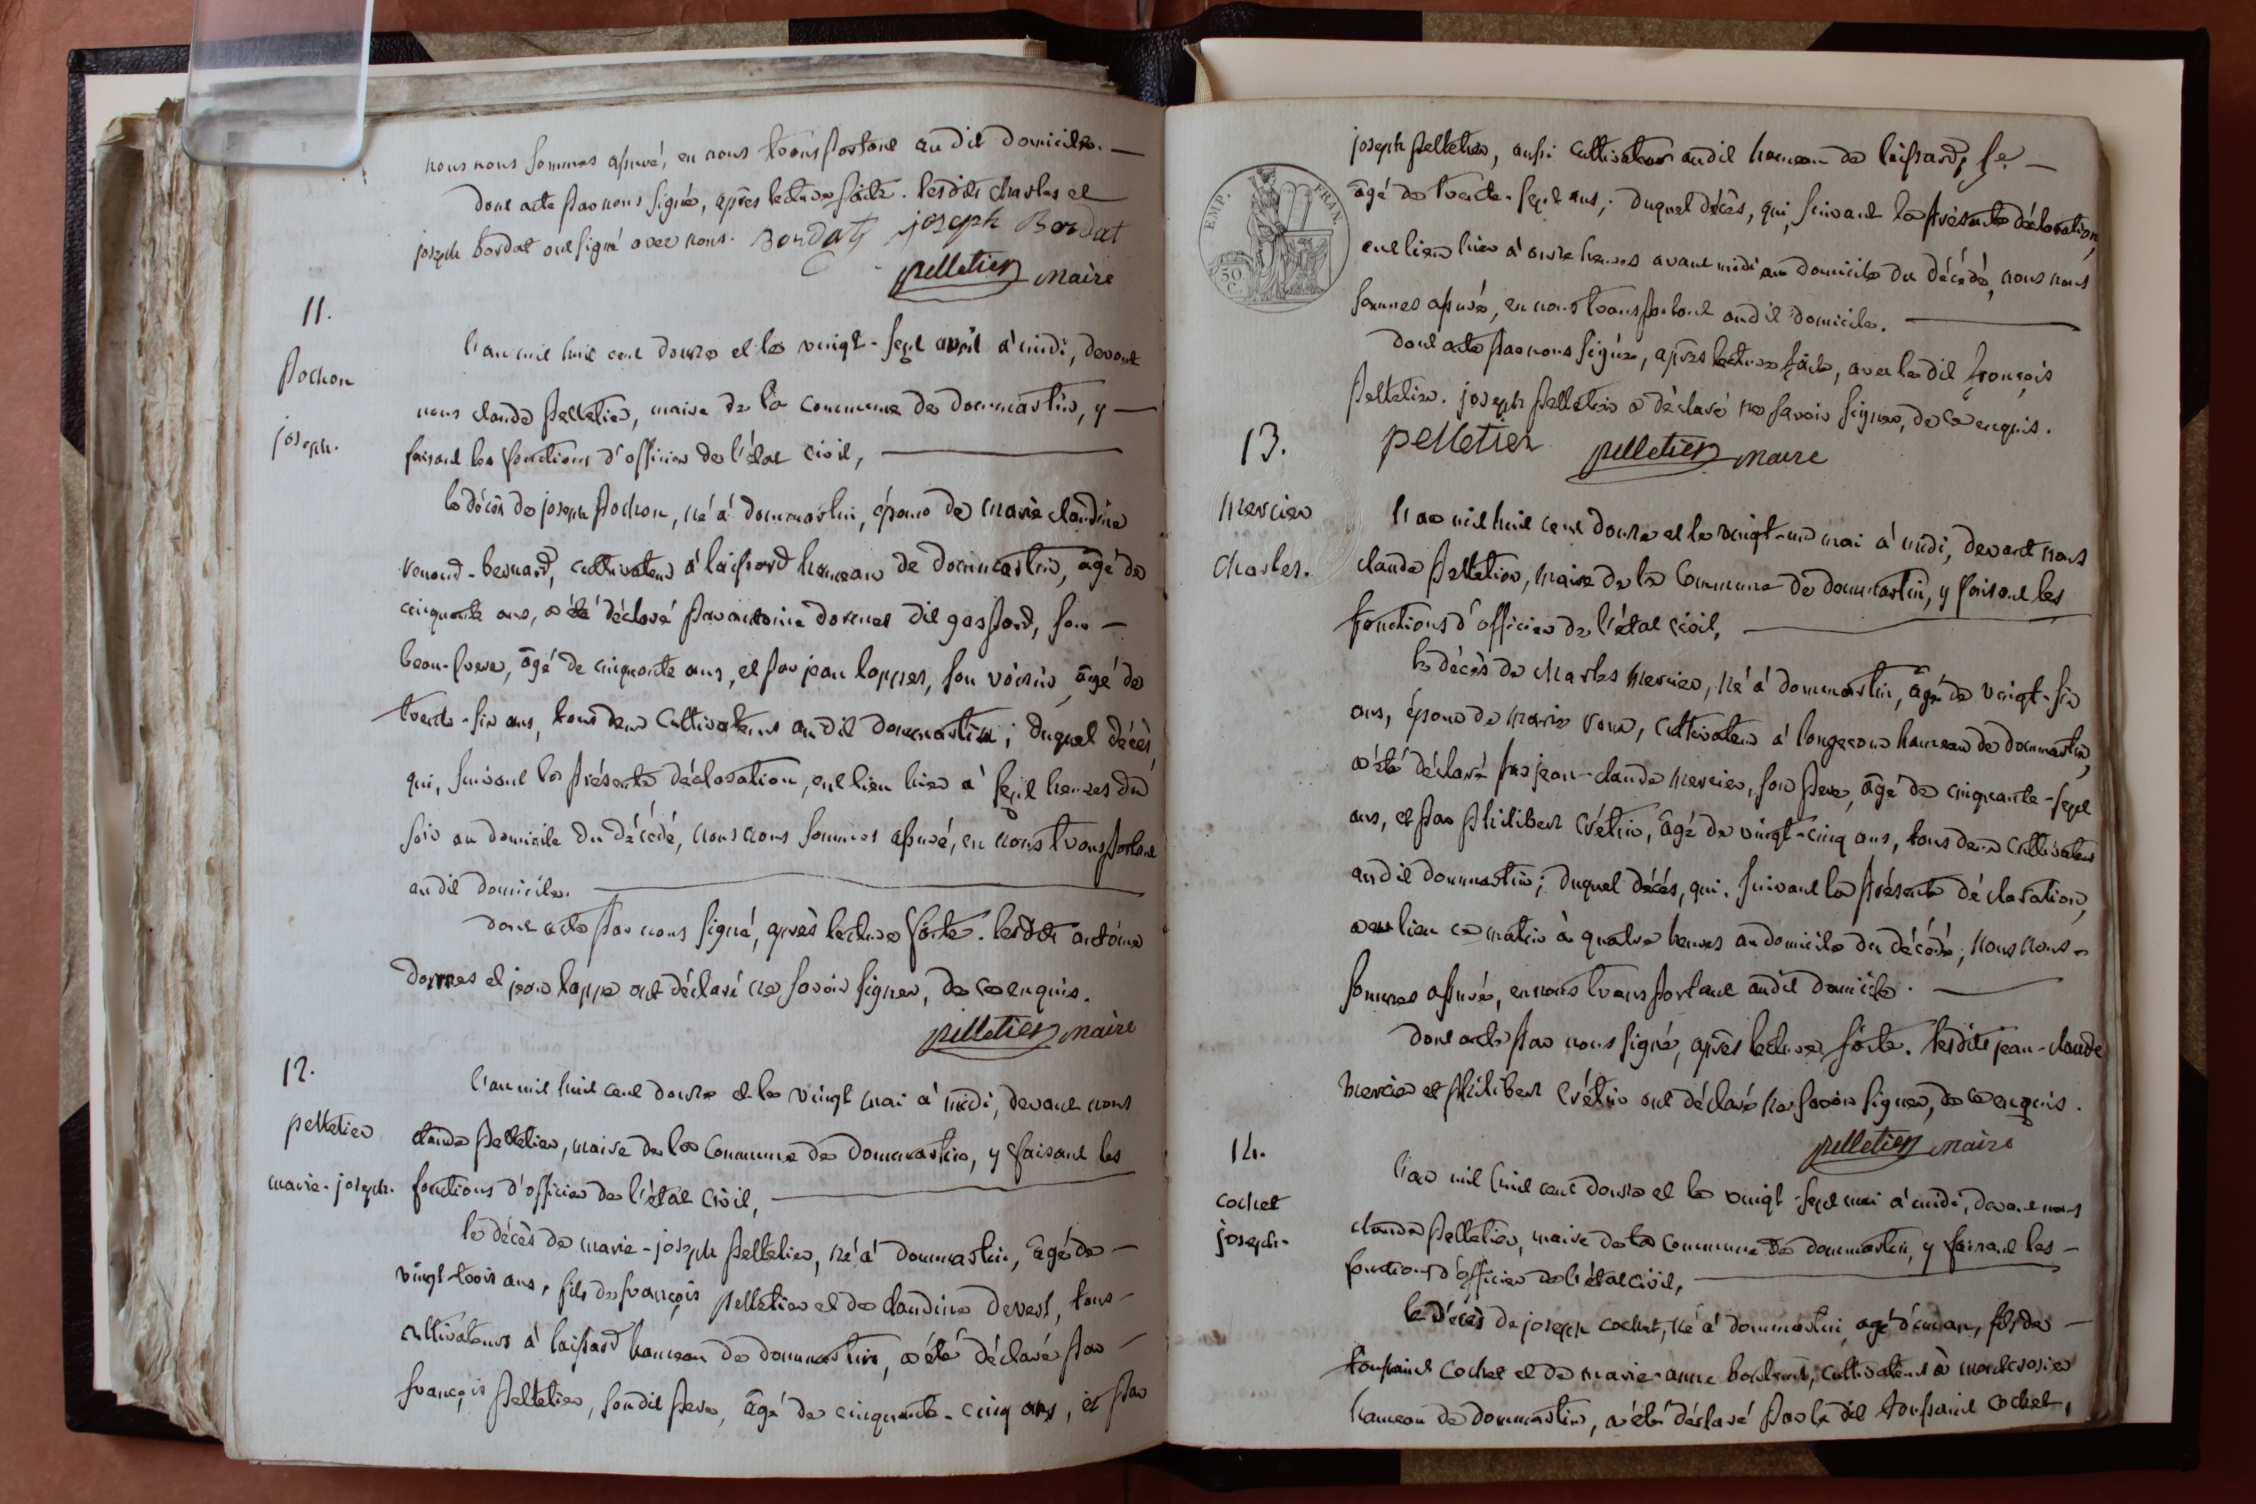 nous nous sommes assuré, en nous transportant audit domicile.
dont acte par nous signé, après lecture faite. lesdits charles et
joseph bordat ont signé avec nous. Bordat joseph Bordat
pelletier maire
11.
pochon
joseph.
l'an mil huit cent douze et le vingt-sept avril à midi, devant
nous claude pelletier, maire de la commune de dommartin, y
faisant les fonctions d'officier de l'état civil,
le décès de joseph pochon, né à dommartin, époux de marie claudine
renoud-bernard, cultivateur à laissard hameau de dommartin, âgé de
cinquante ans, a été déclaré par antoine dormes dit gaspard, son
beau-frere, âgé de cinquante ans, et par jean loppes, son voisin, âgé de
trente-six ans, tous deux cultivateurs audit dommartin; duquel décès,
qui, suivant la présente déclaration, eut lieu hier à sept heures du
soir au domicile du décédé, nous nous sommes assuré, en nous transportant
audit domicile.
dont acte par nous signé, après lecture faite. lesdits antoine
dormes et jean loppe ont déclaré ne savoir signer, de ce enquis.
pelletier maire
12.
pelletier
marie-joseph.
l'an mil huit cent douze et le vingt mai à midi, devant nous
claude pelletier, maire de la commune de dommartin, y faisant les
fonctions d'officier de l'état civil,
le décès de marie-joseph pelletier, né à dommartin, âgé de
vingt-trois ans, fils de françois pelletier et de claudine devest, tous
cultivateurs à laissard hameau de dommartin, a été déclaré par
françois pelletier, son dit pere, âgé de cinquante-cinq ans, et par
EMP. FRAN.
50 C.
joseph pelletier, aussi cultivateur audit hameau de laissard,
âgé de trente-sept ans; duquel décès, qui, suivant la présente déclaration,
eut lieu hier à onze heures avant midi au domicile du décédé, nous nous
sommes assuré, en nous transportant audit domicile.
dont acte par nous signé, après lecture faite, avec ledit françois
pelletier. joseph pelletier a déclaré ne savoir signer, de ce enquis.
pelletier pelletier maire
13.
mercier
charles.
l'an mil huit cent douze et le vingt-un mai à midi, devant nous
claude pelletier, maire de la commune de dommartin, y faisant les
fonctions d'officier de l'état civil,
le décès de charles mercier, né à dommartin, âgé de vingt-six
ans, époux de marie roux, cultivateur à longecour hameau de dommartin,
a été déclaré par jean-claude mercier, son pere, âgé de cinquante-sept
ans, et par philibert crétin, âgé de vingt-cinq ans, tous deux cultivateurs
audit dommartin; duquel décès, qui, suivant la présente déclaration,
a eu lieu ce matin à quatre heures au domicile du décédé, nous nous
sommes assuré, en nous transportant audit domicile.
dont acte par nous signé, après lecture faite. lesdits jean-claude
mercier et philibert crétin ont déclaré ne savoir signer, de ce enquis.
pelletier maire
14.
cochet
joseph.
l'an mil huit cent douze et le vingt-sept mai à midi, devant nous
claude pelletier, maire de la commune de dommartin, y faisant les
fonctions d'officier de l'état civil,
le décès de joseph cochet, né à dommartin, âgé d'un an, fils de
toussaint cochet et de marie-anne cultivateurs à
hameau de dommartin, a été déclaré par ledit toussaint cochet,